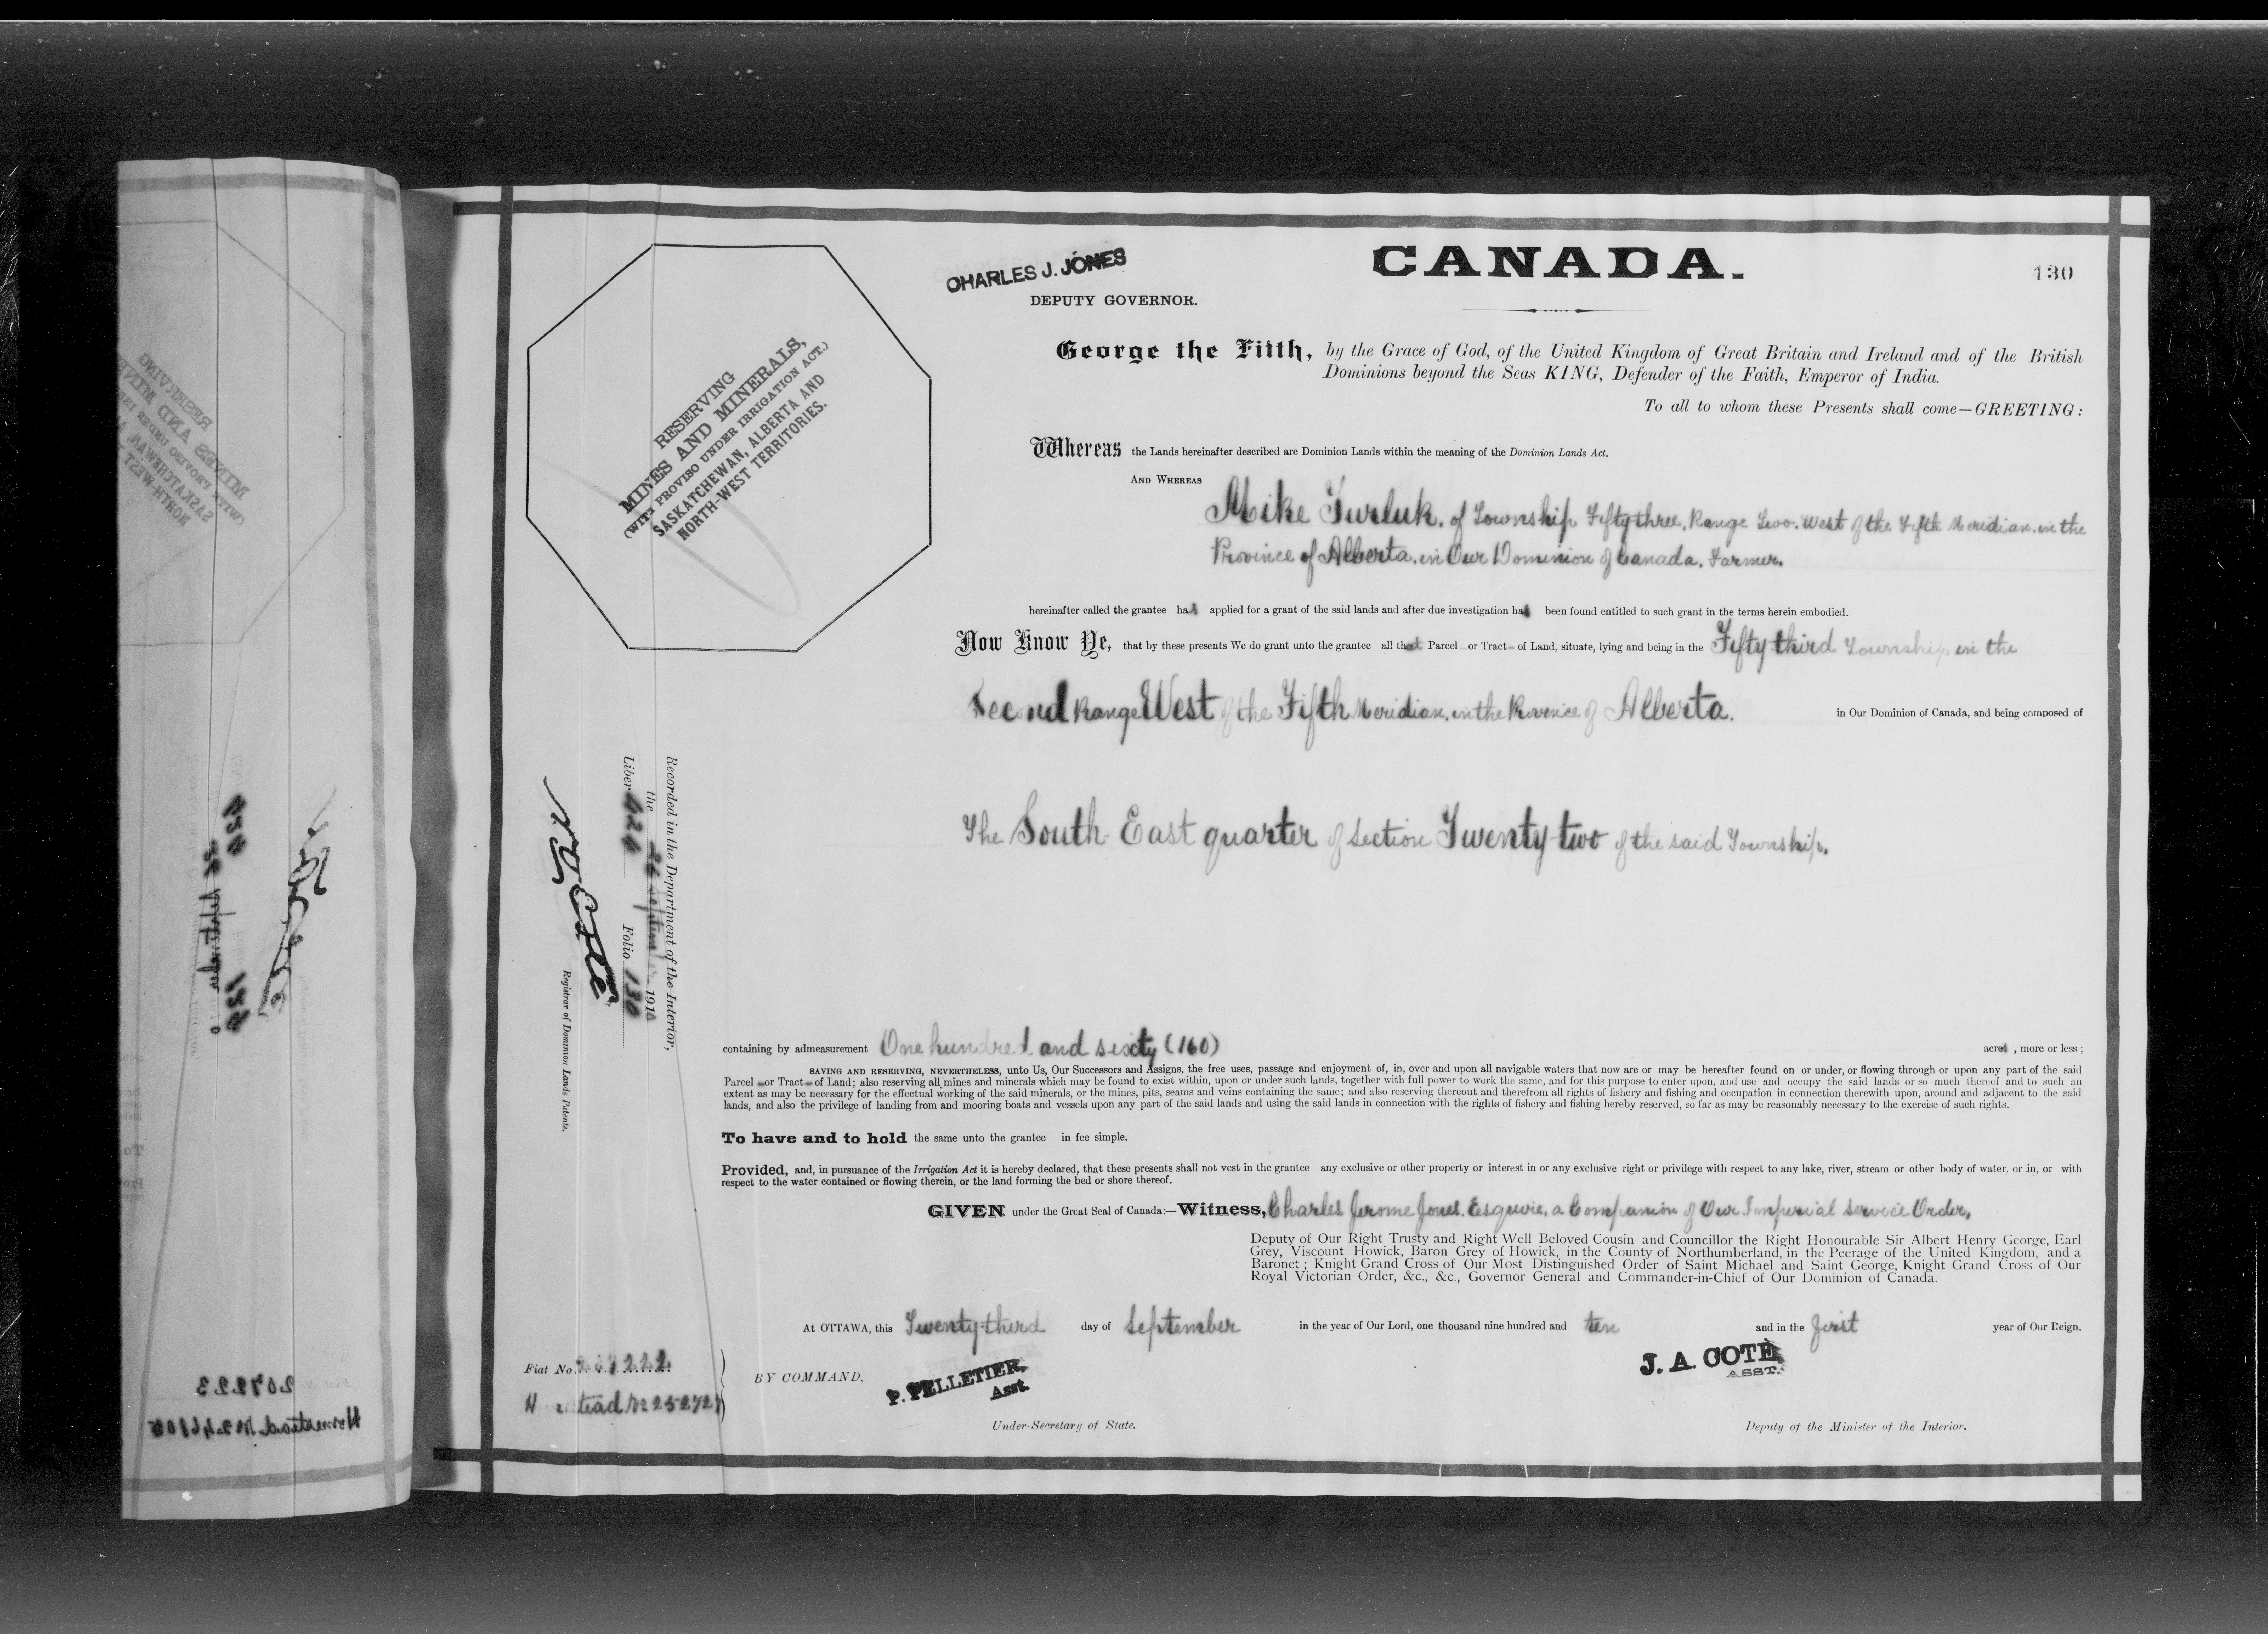 CHARLES J. JONES
DEPUTY GOVERNOR.
CANADA.
130
RESERVING
MINES AND MINERALS,
(WITH PROVISO UNDER IRRIGATION ACT.)
SASKATCHEWAN, ALBERTA AND
NORTH-WEST TERRITORIES.
George the Fifth, by the Grace of God, of the United Kingdom of Great Britain and Ireland and of the British
Dominions beyond the Seas KING, Defender of the Faith, Emperor of India.
To all to whom these Presents shall come—GREETING:
Whereas the Lands hereinafter described are Dominion Lands within the meaning of the Dominion Lands Act.
AND WHEREAS
Mike Turluk, of Township Fifty-three, Range Two. West of the Fifth Meridian. in the
Province of Alberta. in Our Dominion of Canada. Farmer.
hereinafter called the grantee has applied for a grant of the said lands and after due investigation has been found entitled to such grant in the terms herein embodied.
Now Know Ye, that by these presents We do grant unto the grantee all that Parcel or Tract of Land, situate, lying and being in the Fifty-third Township in the
Second Range West of the Fifth Meridian, in the Province of Alberta. in Our Dominion of Canada, and being composed of
The South East quarter of Section Twenty-two of the said Township.
Recorded in the Department of the Interior,
the 26 September 1910
Liber 424 Folio 130
N. O. Coté
Registrar of Dominion Lands Patents.
containing by admeasurement One hundred and sixty (160) acres, more or less;
SAVING AND RESERVING, NEVERTHELESS, unto Us, Our Successors and Assigns, the free uses, passage and enjoyment of, in, over and upon all navigable waters that now are or may be hereafter found on or under, or flowing through or upon any part of the said
Parcel or Tract of Land; also reserving all mines and minerals which may be found to exist within, upon or under such lands, together with full power to work the same, and for this purpose to enter upon, and use and occupy the said lands or so much thereof and to such an
extent as may be necessary for the effectual working of the said minerals, or the mines, pits, seams and veins containing the same; and also reserving thereout and therefrom all rights of fishery and fishing and occupation in connection therewith upon, around and adjacent to the said
lands, and also the privilege of landing from and mooring boats and vessels upon any part of the said lands and using the said lands in connection with the rights of fishery and fishing hereby reserved, so far as may be reasonably necessary to the exercise of such rights.
To have and to hold the same unto the grantee in fee simple.
Provided, and, in pursuance of the Irrigation Act it is hereby declared, that these presents shall not vest in the grantee any exclusive or other property or interest in or any exclusive right or privilege with respect to any lake, river, stream or other body of water. or in, or with
respect to the water contained or flowing therein, or the land forming the bed or shore thereof.
GIVEN under the Great Seal of Canada:—Witness, Charles Jerome Jones. Esquire, a Companion of Our Imperial Service Order,
Deputy of Our Right Trusty and Right Well Beloved Cousin and Councillor the Right Honourable Sir Albert Henry George, Earl
Grey, Viscount Howick, Baron Grey of Howick, in the County of Northumberland, in the Peerage of the United Kingdom, and a
Baronet; Knight Grand Cross of Our Most Distinguished Order of Saint Michael and Saint George, Knight Grand Cross of Our
Royal Victorian Order, &c., &c., Governor General and Commander-in-Chief of Our Dominion of Canada.
At OTTAWA, this Twenty-third day of September in the year of Our Lord, one thousand nine hundred and ten and in the first year of Our Reign.
Fiat No 267222
BY COMMAND,
P. PELLETIER,
Asst.
J. A. COTÉ
ASST.
Under-Secretary of State.
Deputy of the Minister of the Interior.